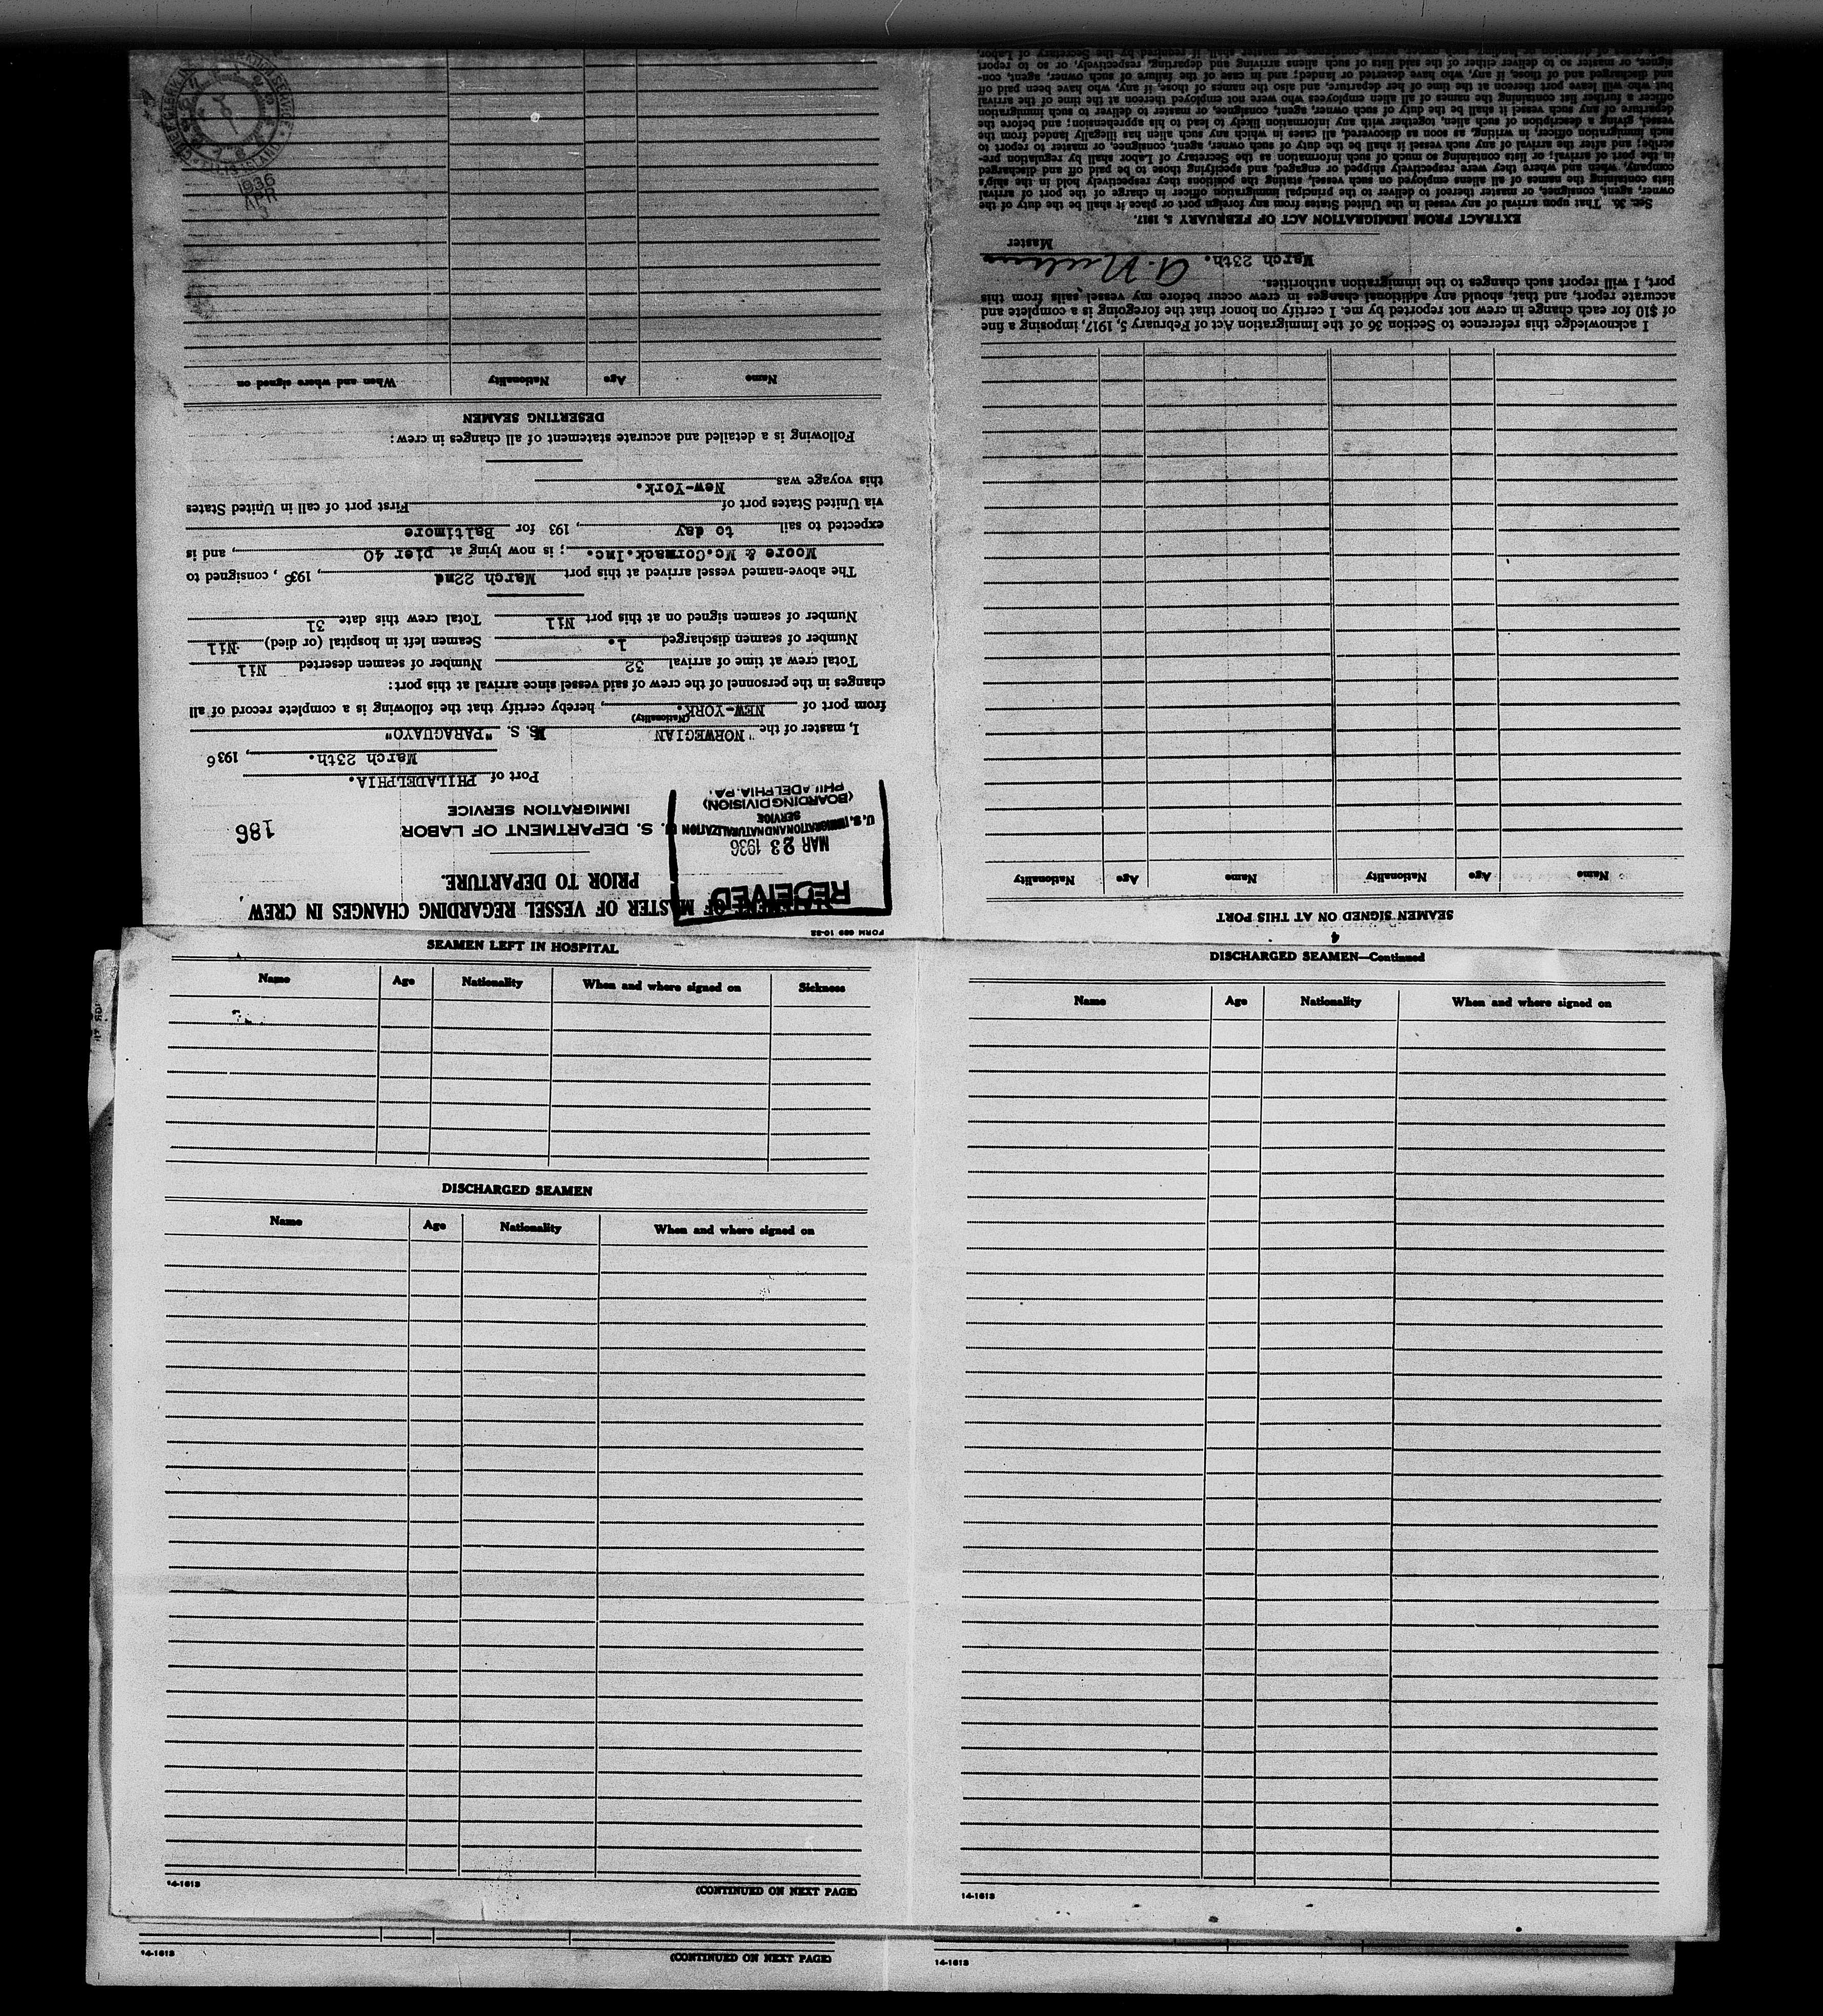 FORM 689 10-32
STATEMENT OF MASTER OF VESSEL REGARDING CHANGES IN CREW
PRIOR TO DEPARTURE.
RECEIVED
MAR 23 1936
U. S. IMMIGRATION AND NATURALIZATION
SERVICE
(BOARDING DIVISION)
PHILADELPHIA, PA.
U. S. DEPARTMENT OF LABOR
IMMIGRATION SERVICE
186
Port of PHILADELPHIA.
March 23th. , 1936
I, master of the "NORWEGIAN S. S. "PARAGUAYO"
(Nationality)
from port of NEW-YORK. , hereby certify that the following is a complete record of all
changes in the personnel of the crew of said vessel since arrival at this port:
Total crew at time of arrival 32 Number of seamen deserted Nil
Number of seamen discharged 1. Seamen left in hospital (or died) Nil
Number of seamen signed on at this port Nil Total crew this date 31
The above-named vessel arrived at this port March 22nd , 1936 , consigned to
Moore & Mc.Cormack.Inc. ; is now lying at pier 40 , and is
expected to sail to day , 193 for Baltimore
via United States port of First port of call in United States
this voyage was New-York.
Following is a detailed and accurate statement of all changes in crew:
DESERTING SEAMEN
Name Age Nationality When and where signed on
1936
APR
4
SEAMEN SIGNED ON AT THIS PORT
Name Age Nationality Name Age Nationality
I acknowledge this reference to Section 36 of the Immigration Act of February 5, 1917, imposing a fine
of $10 for each change in crew not reported by me. I certify on honor that the foregoing is a complete and
accurate report, and that, should any additional changes in crew occur before my vessel sails from this
port, I will report such changes to the immigration authorities.
March 23th.
Master
EXTRACT FROM IMMIGRATION ACT OF FEBRUARY 5, 1917.
Sec. 36. That upon arrival of any vessel in the United States from any foreign port or place it shall be the duty of the
owner, agent, consignee, or master thereof to deliver to the principal immigration officer in charge of the port of arrival
lists containing the names of all aliens employed on such vessel, stating the positions they respectively hold in the ship's
company, when and where they were respectively shipped or engaged, and specifying those to be paid off and discharged
in the port of arrival; or lists containing so much of such information as the Secretary of Labor shall by regulation pre-
scribe; and after the arrival of any such vessel it shall be the duty of such owner, agent, consignee, or master to report to
such immigration officer, in writing, as soon as discovered, all cases in which any such alien has illegally landed from the
vessel, giving a description of such alien, together with any information likely to lead to his apprehension; and before the
departure of any such vessel it shall be the duty of such owner, agent, consignee, or master to deliver to such immigration
officer a further list containing the names of all alien employees who were not employed thereon at the time of the arrival
but who will leave port thereon at the time of her departure, and also the names of those, if any, who have been paid off
and discharged and of those, if any, who have deserted or landed; and in case of the failure of such owner, agent, con-
signee, or master so to deliver either of the said lists of such aliens arriving and departing, respectively, or so to report
SEAMEN LEFT IN HOSPITAL
Name Age Nationality When and where signed on Sickness
DISCHARGED SEAMEN
Name Age Nationality When and where signed on
14-1613
(CONTINUED ON NEXT PAGE)
DISCHARGED SEAMEN—Continued
Name Age Nationality When and where signed on
14-1613
14-1613
(CONTINUED ON NEXT PAGE)
14-1613